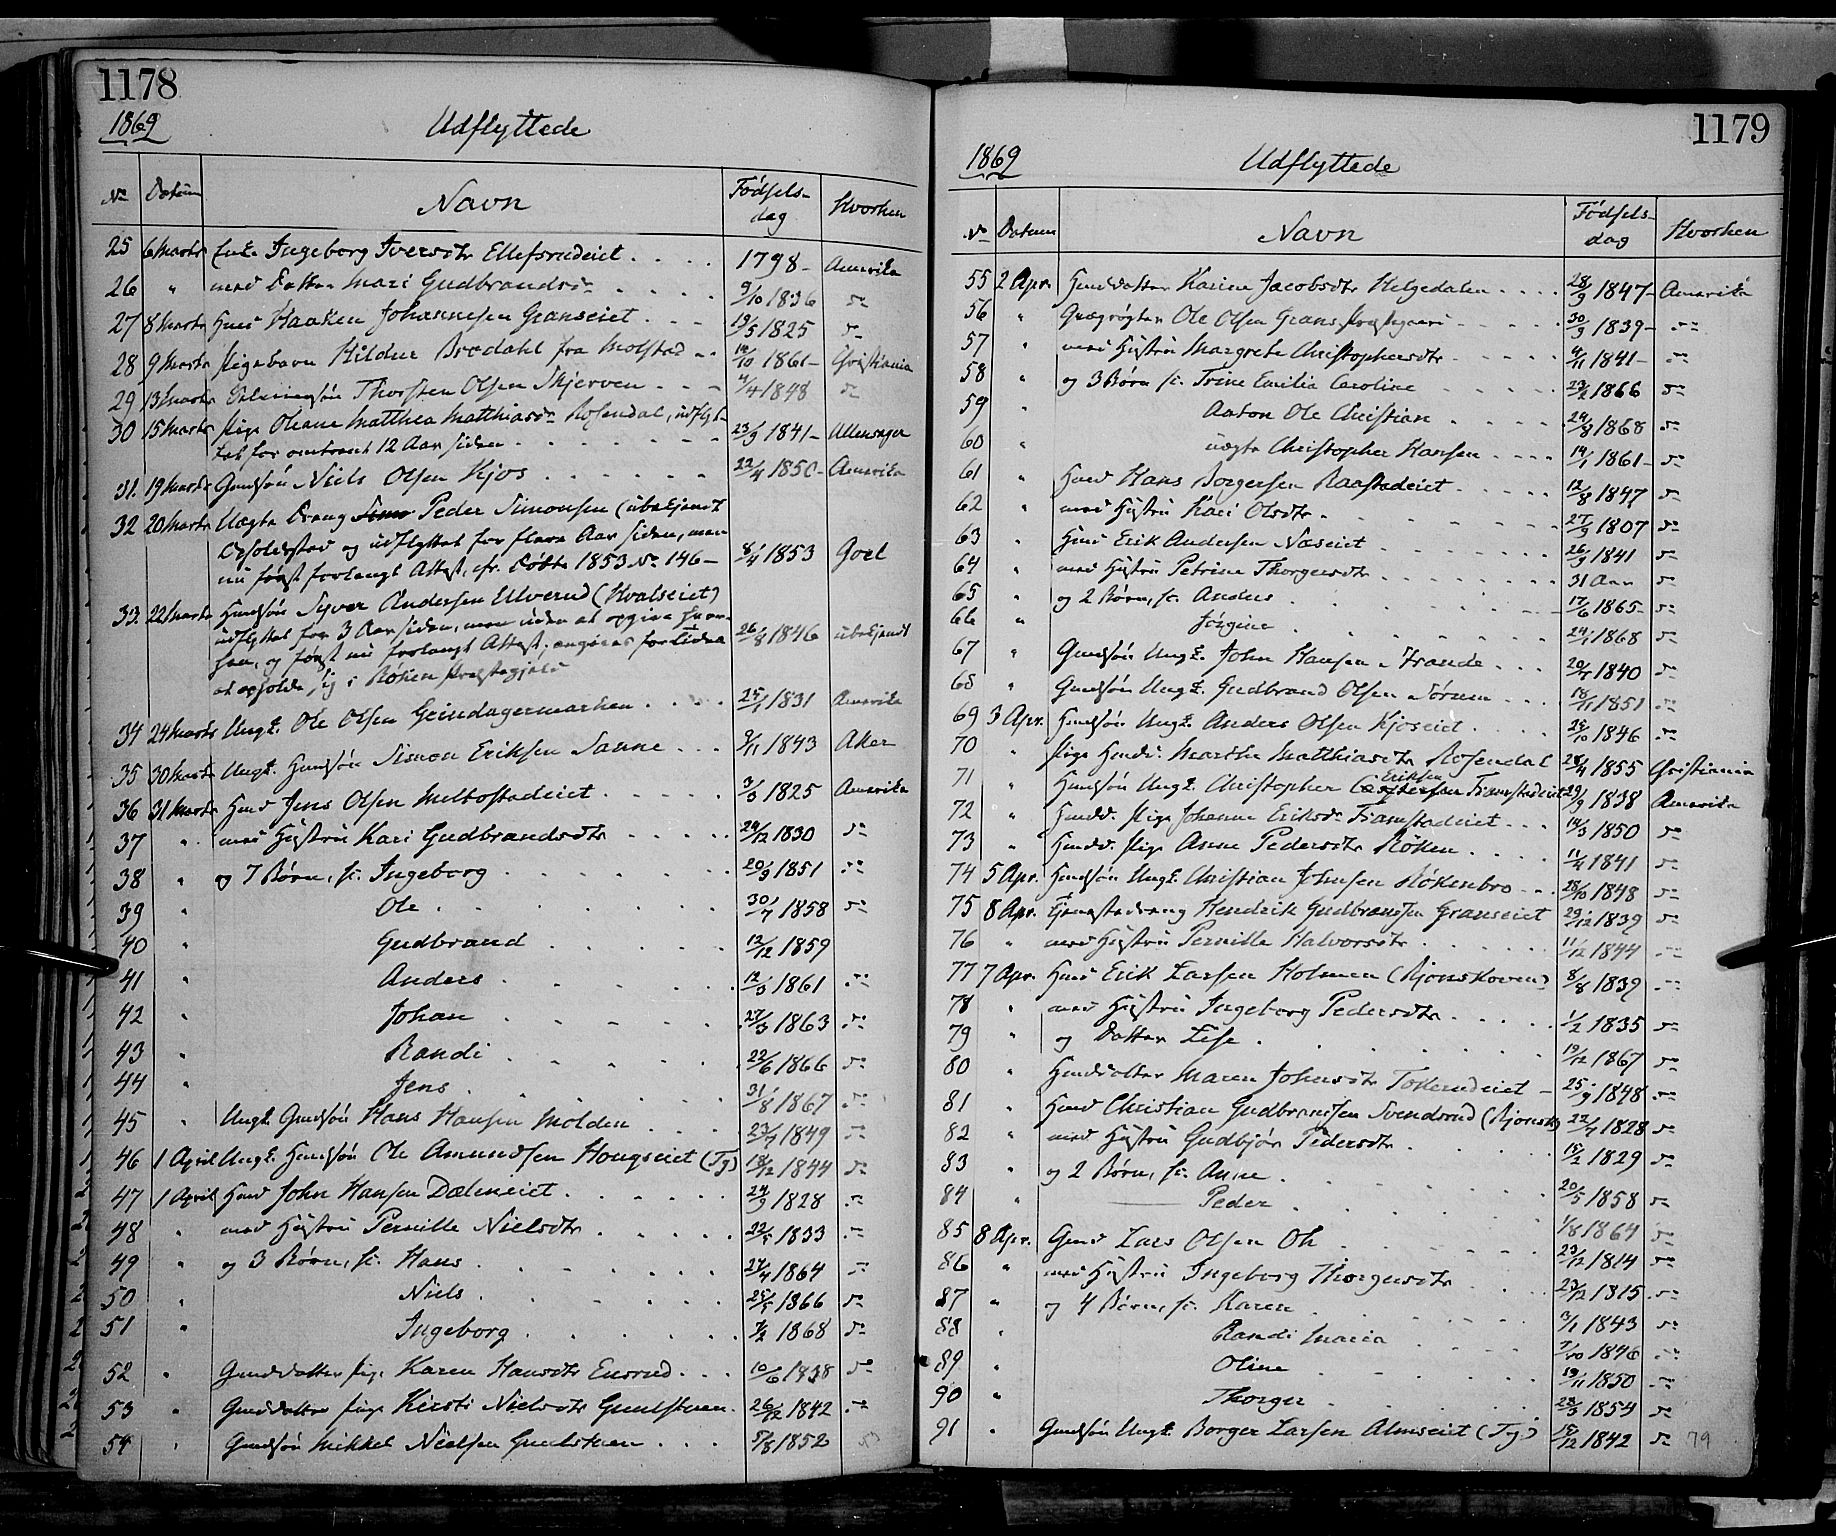 1178
1869 Udflyttede
No Datum Navn Fødsels-dag Hvorhen
25 6 Marts Enke Ingeborg Iversdtr Ellefsrudeiet 1798 Amerika
26 " med Datter Mari Gudbrandsdr 9/10 1836 do
27 8 Marts Huusm Haaken Johannesen Granseiet 19/5 1825 do
28 9 Marts Pigebarn Hildur Brodahl fra Molstad 14/10 1861 Christiania
29 13 Marts Thorsten Olsen Skjerven 4/4 1848 do
30 15 Marts Pige Oleane Matthea Matthiasdr Rosendal, udflyt-
tet for omtrent 12 Aar siden 23/9 1841 Ullensager
31. 19 Marts Gaardsøn Niels Olsen Kjos 22/4 1850 Amerika
32 20 Marts Uægte Dreng Peder Simonsen (ubekjendt
Opholdssted og udflyttet for flere Aar siden, men
nu først forlangt Attest, cfr. Døbte 1853 No 146 8/4 1853 Goel
33. 22 Marts Huussøn Syver Andersen Ulverud (Hvalseiet)
udflyttet for 3 Aar siden, men uden at opgive hvor-
hen, og først nu forlangt Attest, angives for Tiden
at opholde sig i Røken Præstegjeld 26/8 1846 ubekjendt
34 24 Marts Ungk. Ole Olsen Grindagermarken 25/1 1831 Amerika
35 30 Marts Ungk. Huussøn Simon Eriksen Sanne 9/11 1843 Aker
36 31 Marts Huusm Jens Olsen Melbostadeiet 3/3 1825 Amerika
37 " med Hustru Kari Gudbrandsdtr 24/12 1830 do
38 " og 7 Børn, sc. Ingeborg 20/9 1851 do
39 " Ole 30/7 1858 do
40 " Gudbrand 12/12 1859
41 " Anders 12/3 1861 do
42 " Johan 27/3 1863 do
43 " Randi 22/6 1866 do
44 " Jens 31/8 1867 do
45 " Ungk. Gaardsøn Hans Hansen Molden 23/7 1849 do
46 1 April Ungk. Huussøn Ole Amundsen Hougseiet (Tg) 18/12 1844 do
47 1 April Huusm John Hansen Dæleneiet 24/9 1828 do
48 " med Hustru Pernille Nielsdtr 22/5 1833 do
49 " og 3 Børn, sc. Hans 27/4 1864 do
50 " Niels 25/5 1866 do
51 " Ingeborg 7/2 1868 do
52 " Gaarddatter Pige Karen Hansdtr Ensrud 10/6 1838 do
53 " Gaarddatter Pige Kirsti Nielsdtr Gunstuen 26/12 1842 do
54 " Gaardsøn Mikkel Nielsen Gunstuen 5/8 1852 do
1179
1869 Udflyttede
No Datum Navn Fødsels-dag Hvorhen
55 2 Apr. Huusdatter Karine Jacobsdtr Helgedalen 28/9 1847 Amerika
56 " Qvægrøgter Ole Olsen Grans Præstegaard 30/9 1839 do
57 " med Hustru Margrete Christophersdtr 4/11 1841 do
58 " og 3 Børn sc. Trine Emilia Caroline 23/2 1866 do
59 " Anton Ole Christian 24/8 1868 do
60 " uægte Christopher Hansen 14/1 1861 do
61 " Huusm Hans Borgersen Raastadeiet 12/8 1847 do
62 " med Hustru Kari Olsdtr 27/9 1807 do
63 " Huusm Erik Andersen Næseiet 26/9 1841 do
64 " med Hustru Petrine Thorgersdtr 31 Aar do
65 " og 2 Børn, sc. Anders 17/6 1865 do
66 " Jørgine 24/1 1868 do
67 " Gaardsøn Ungk. John Hansen Trande 20/5 1840 do
68 " Gaardsøn Ungk. Gudbrand Olsen Sørum 18/11 1851 do
69 3 Apr. Huussøn Ungk. Anders Olsen Kjoseiet 25/10 1846 do
70 " Pige Huusd. Marthe Matthiasdtr Rosendal 28/4 1855 Christiania
71 " Huussøn Ungk. Christopher Eriksen Framstadeiet 29/9 1838 Amerika
72 " Huusd. Pige Johanne Eriksdr Framstadeiet 14/3 1850 do
73 " Huusd. Pige Anne Pedersdtr Røken 11/4 1841 do
74 5 Apr. Huussøn Ungk. Christian Johnsen Røkenbro 28/10 1848 do
75 8 Apr. Tjenestedreng Hendrik Gudbrandsen Granseiet 29/12 1839 do
76 " med Hustru Pernille Halvorsdtr 11/12 1844 do
77 7 Apr. Huusm Erik Larsen Holmen (Bjonskoven) 8/8 1839 do
78 " med Hustru Ingeborg Pedersdtr 1/2 1835 do
79 " og Datter Lise 19/12 1867 do
80 " Huusdatter Maren Johnsdtr Tokerudeiet 25/9 1848 do
81 " Huusm Christian Gudbrandsen Svendsrud (Bjonsk) 22/7 1828 do
82 " med Hustru Gudbjør Pedersdtr 15/2 1829 do
83 " og 2 Børn, sc. Anne 20/5 1858 do
84 " Peder 1/8 1864 do
85 8 Apr. Gaardm Lars Olsen Oh 23/12 1814 do
86 " med Hustru Ingeborg Thorgersdtr 23/12 1815 do
87 " og 4 Børn, sc. Karen 3/1 1843 do
88 " Randi Maria 7/10 1846 do
89 " Oline 19/11 1850 do
90 " Thorger 28/3 1854 do
91 " Gaardsøn Ungk. Borger Larsen Almseiet (Tg.) 19/12 1842 do
79